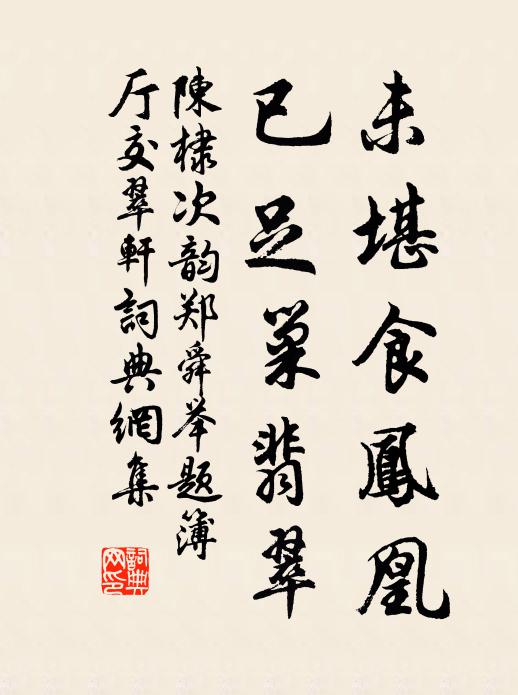 未堪食鳳凰
已足巢翡翠
陳棣次韵郑舜举题簿
厅交翠軒詞典網集
詞典网印